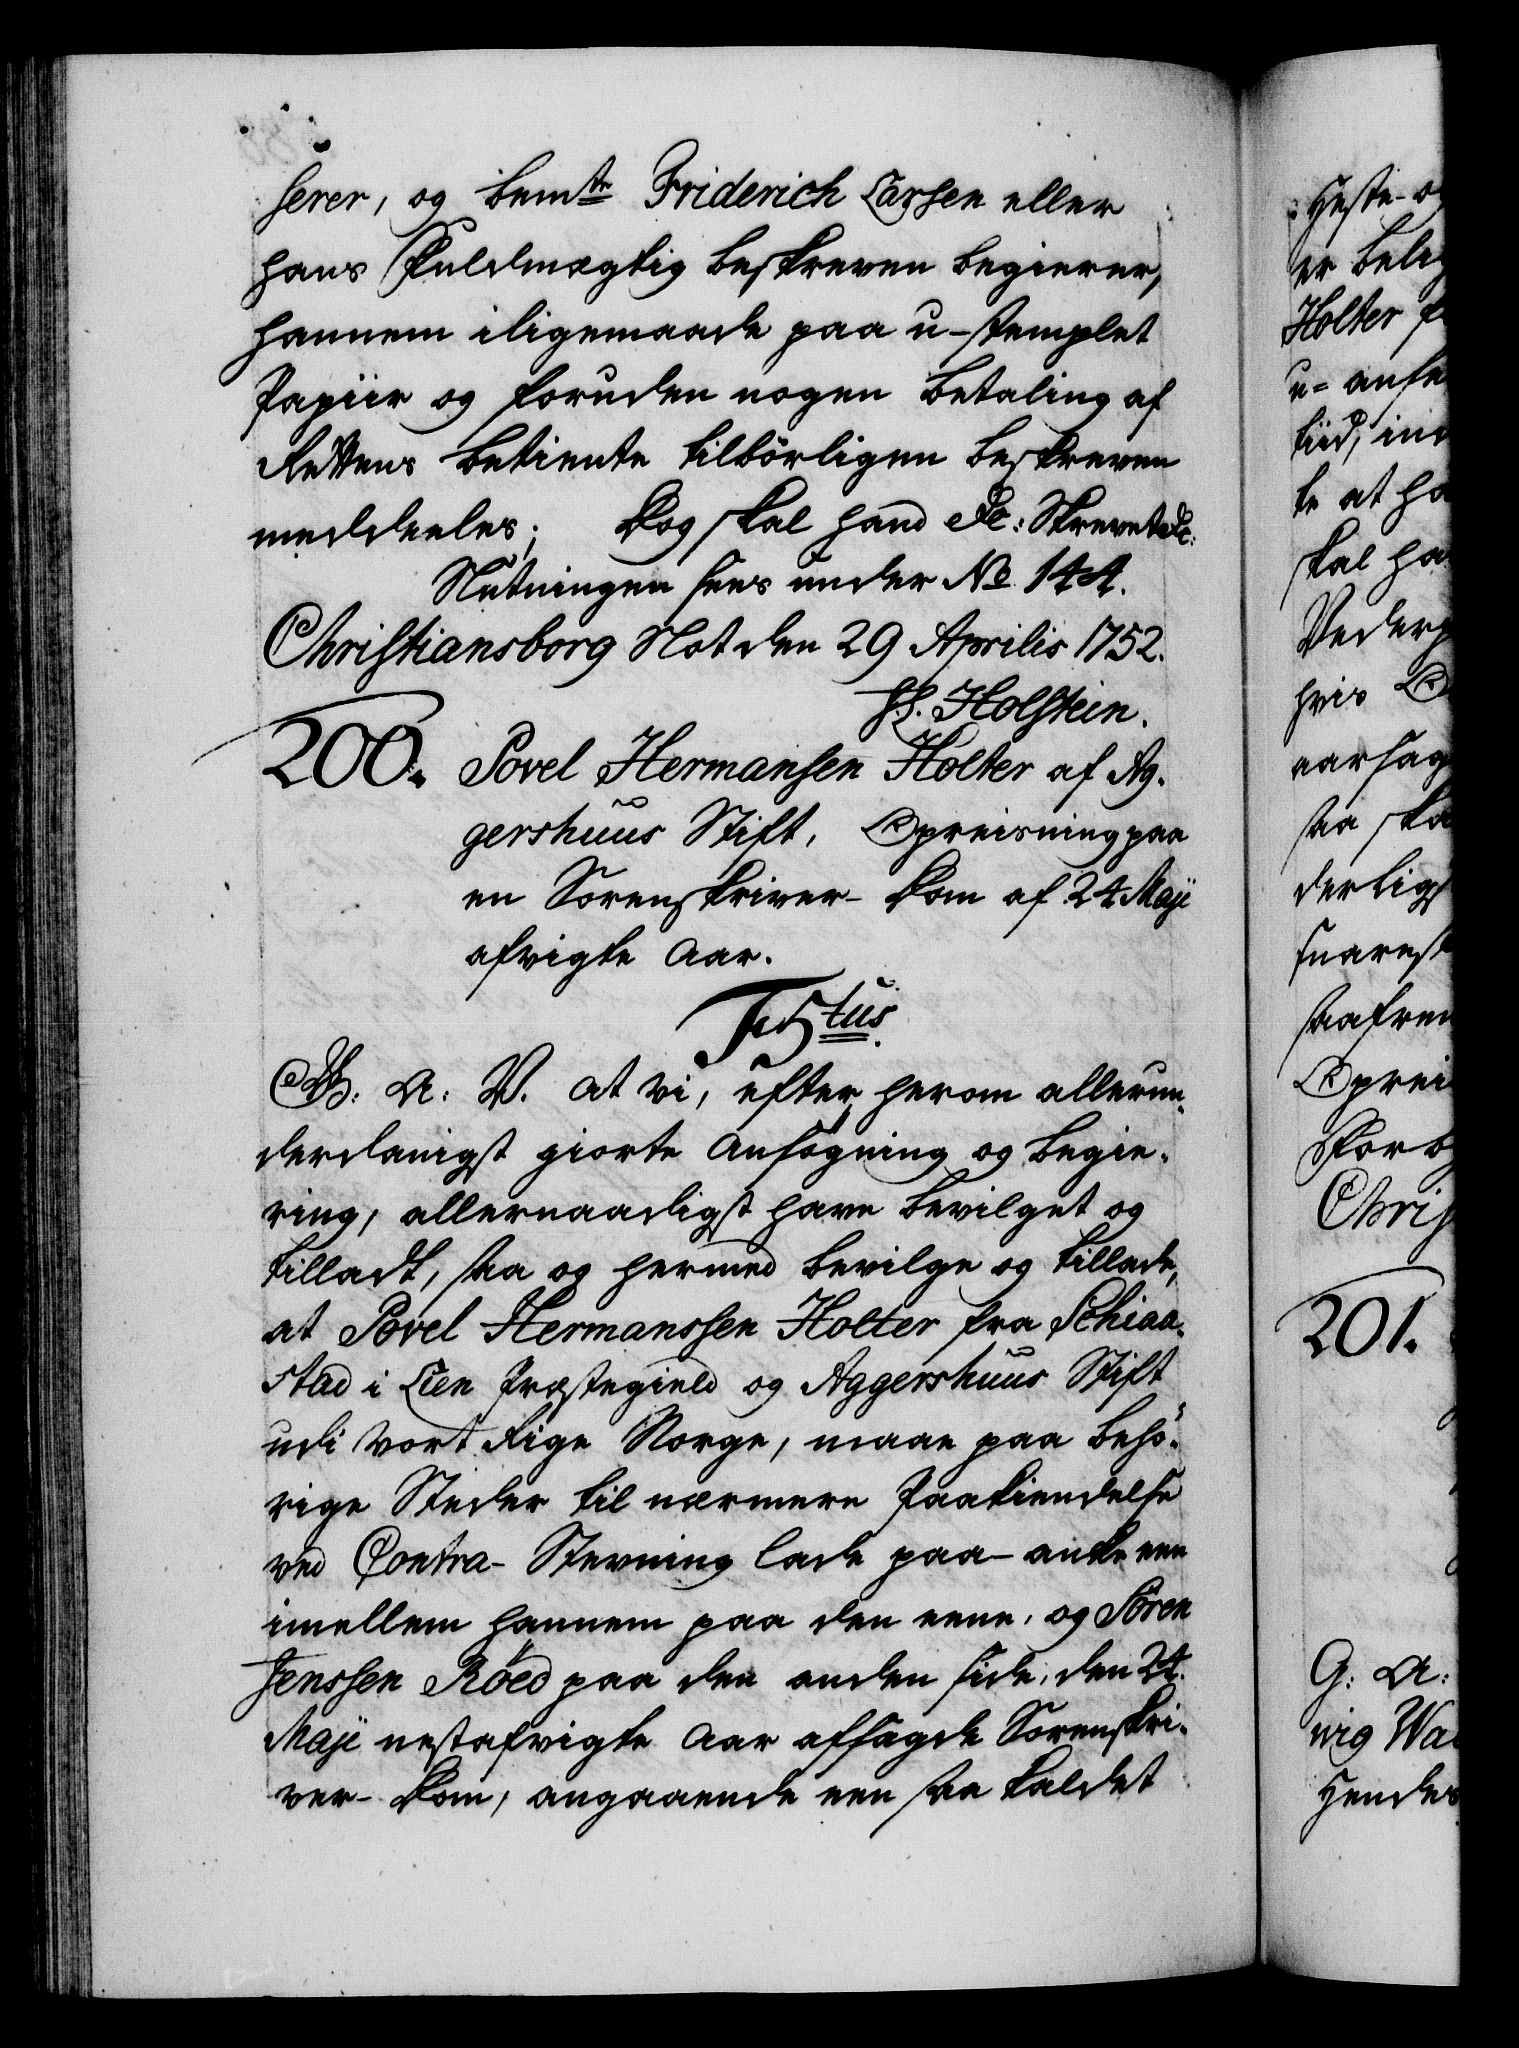 serer, og bemte Friderich Larsen eller
hans Fuldmægtig beskreven begierer,
hannem iligemaade paa u-stemplet
Papiir og foruden nogen Betaling af
Rettens Betiente tilbörligen beskreven
meddeeles; Dog skal hand &c: Skrevet &c:
Slutningen sees under No 144.
Christiansborg Slot den 29 Aprilis 1752.
J. L. Holstein.
200. Povel Hermansen Holter af Ag-
gershuus Stift, Opreisning paa
en Sorenskriver-Dom af 24 Maji
afvigte Aar.
F5tus.
G: A: V. at vi, efter herom allerun-
derdanigst giorte Ansøgning og Begie-
ring, allernaadigst have bevilget og
tilladt, saa og hermed bevilge og tillade,
at Povel Hermanssen Holter fra Schiaa-
stad i Lier Præstegield og Aggershuus Stift
udi Vort Rige Norge, maae paa behö-
rige Steder til nærmere Paakiendelse
ved Contra-Stevning lade paa-anke een
imellem hannem paa den eene, og Sören
Jenssen Röed paa den anden side, den 24.
Maji nestafvigte Aar afsagde Sorenskri-
ver-Dom, angaaende een saa kaldet
Heste-o
er beli
Holter f
u-anse
tiid, in
te at ha
skal ha
Vederp
hvis
aarsag
saa ska
derligs
snarest
saafrem
Oprei
Forb
Chris
201.
G: A:
wig Wa
Hendes